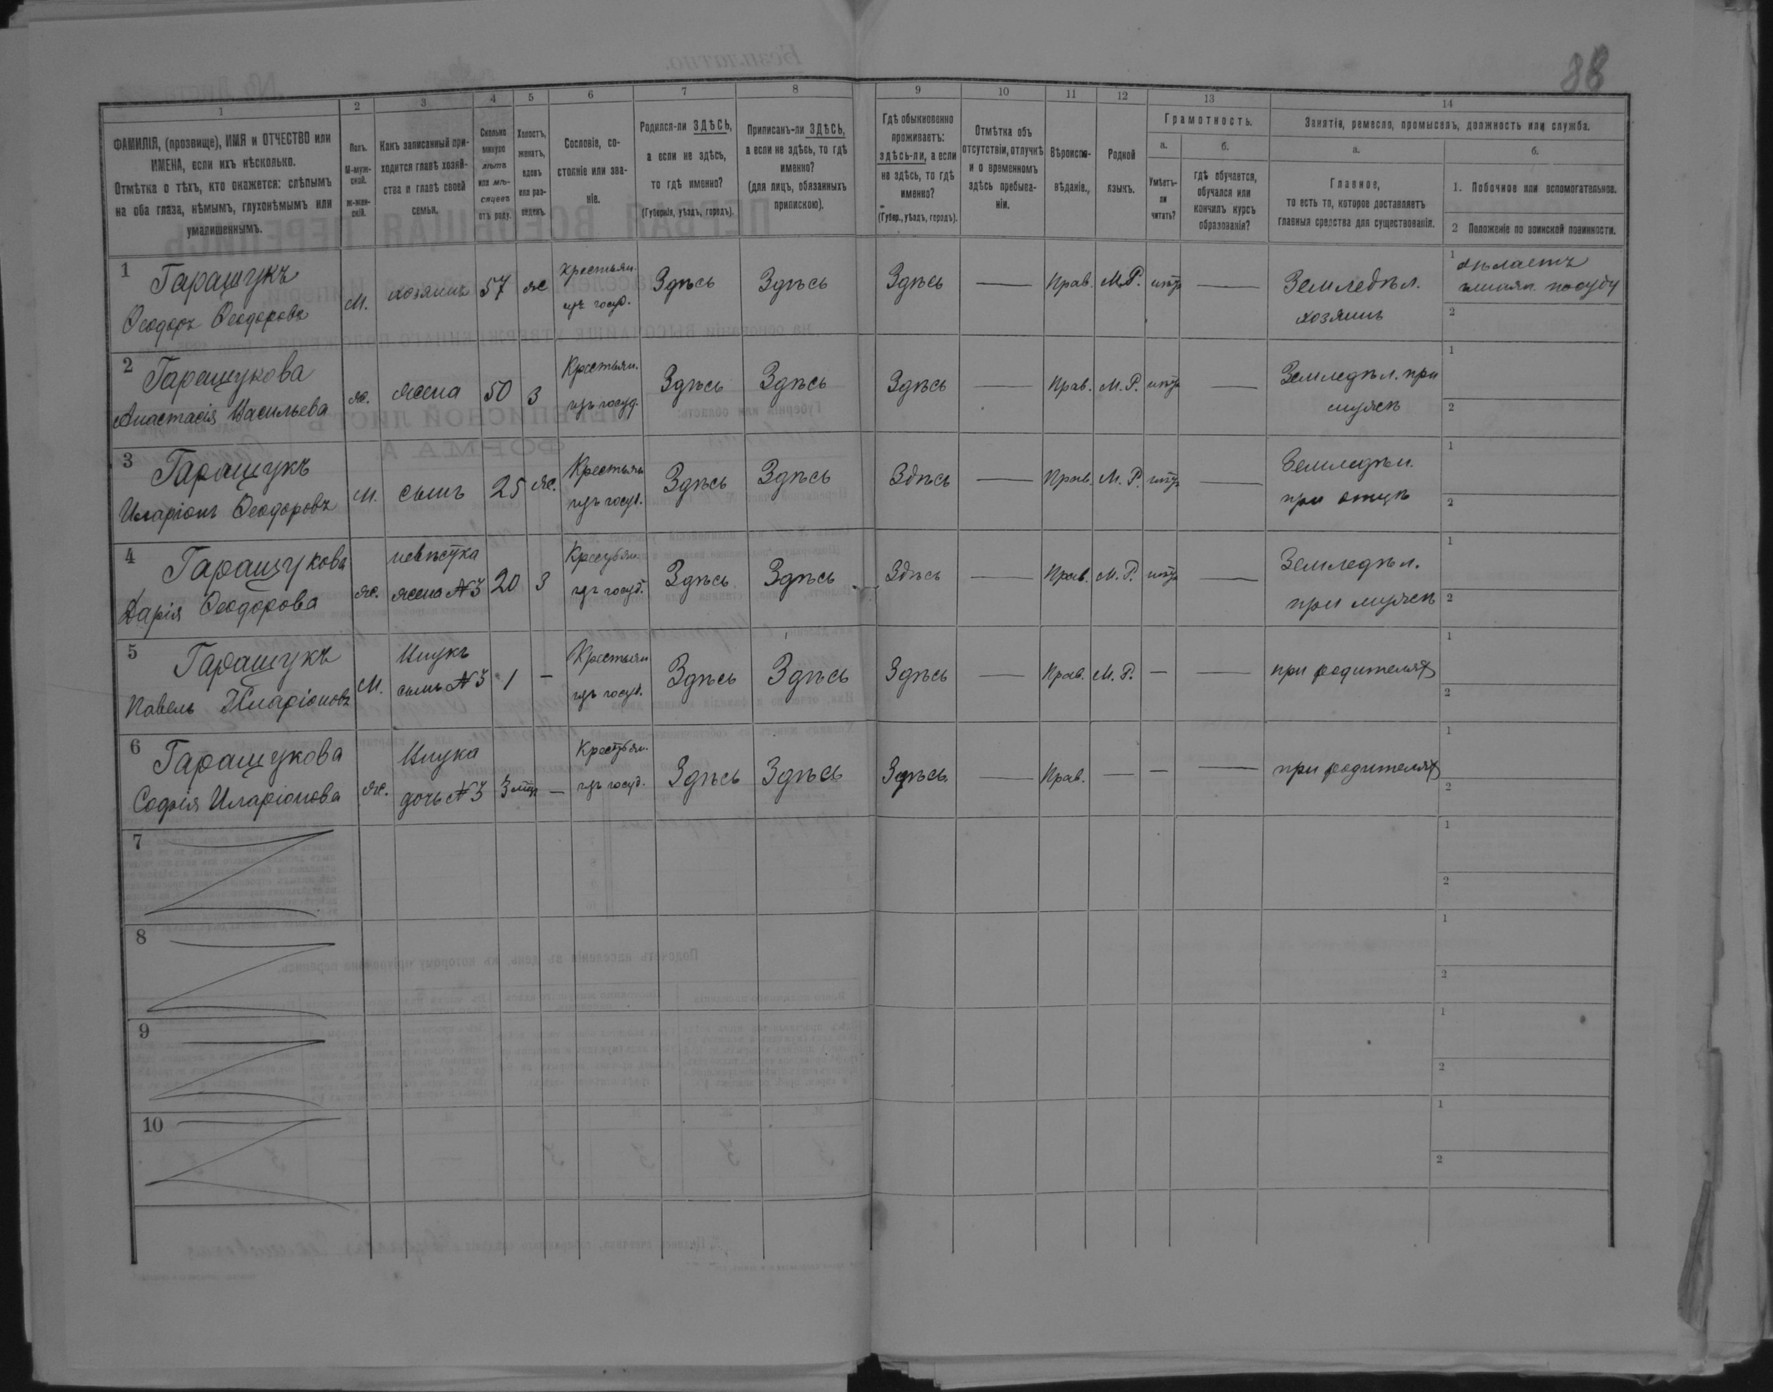 88
1
2
3
4
5
6
7
8
9
10
11
12
13
14
ФАМИЛІЯ, (прозвище), ИМЯ и ОТЧЕСТВО или
ИМЕНА, если ихъ нѣсколько.
Отмѣтка о тѣхъ, кто окажется: слѣпымъ
на оба глаза, нѣмымъ, глухонѣмымъ или
умалишеннымъ.
Полъ.
М-муж-
ской.
ж-жен-
скій.
Какъ записанный при-
ходится главѣ хозяй-
ства и главѣ своей
семьи.
Сколько
минуло
лѣтъ
или мѣ-
сяцевъ
отъ роду.
Холостъ,
женатъ,
вдовъ
или раз-
веденъ.
Сословіе, со-
стояніе или зва-
ніе.
Родился-ли ЗДѢСЬ,
а если не здѣсь,
то гдѣ именно?
(Губернія, уѣздъ, городъ).
Приписанъ-ли ЗДѢСЬ,
а если не здѣсь, то гдѣ
именно?
(для лицъ, обязанныхъ
припискою).
Гдѣ обыкновенно
проживаетъ:
здѣсь-ли, а если
не здѣсь, то гдѣ
именно?
(Губер., уѣздъ, городъ).
Отмѣтка объ
отсутствіи, отлучкѣ
и о временномъ
здѣсь пребыва-
ніи.
Вѣроиспо-
вѣданіе.
Родной
языкъ.
Грамотность.
а.
Умѣетъ-
ли
читать?
б.
гдѣ обучается,
обучался или
кончилъ курсъ
образованія?
Занятіе, ремесло, промыселъ, должность или служба.
а.
Главное,
то есть то, которое доставляетъ
главныя средства для существованія.
б.
1. Побочное или вспомогательное.
2 Положеніе по воинской повинности.
1 Гаращукъ
Ѳеодоръ Ѳеодоровъ
М. хозяинъ 57 ж
крестьян.
изъ госуд.
Здѣсь Здѣсь Здѣсь — Прав. М.Р. нѣтъ —
Земледѣл.
хозяинъ
1 дѣлаетъ
посуду
2
2 Гаращукова
Анастасія Васильева
ж. жена 50 з
Крестьян.
изъ госуд.
Здѣсь Здѣсь Здѣсь — Прав. М.Р. нѣтъ —
Земледѣл. при
мужѣ
1
2
3 Гаращукъ
Иларіонъ Ѳеодоровъ
М. сынъ 25 ж.
Крестьян
изъ госуд.
Здѣсь Здѣсь Здѣсь — Прав. М.Р. нѣтъ —
Земледѣл.
при отцѣ
1
2
4 Гаращукова
Дарія Ѳеодорова
ж.
невѣстка
жена №3
20 з
Крестьян.
изъ госуд.
Здѣсь Здѣсь Здѣсь — Прав. М.Р. нѣтъ —
Земледѣл.
при мужѣ
1
2
5 Гаращукъ
Павелъ Иларіоновъ
М.
Внукъ
сынъ №3
1 —
Крестьян
изъ госуд.
Здѣсь Здѣсь Здѣсь — Прав. М.Р. — —
при родителях
1
2
6 Гаращукова
Софія Иларіонова
ж.
Внука
дочь №3
3 —
Крестьян.
изъ госуд.
Здѣсь Здѣсь Здѣсь — Прав. — — —
при родителях
1
2
7
1
2
8
1
2
9
1
2
10
1
2